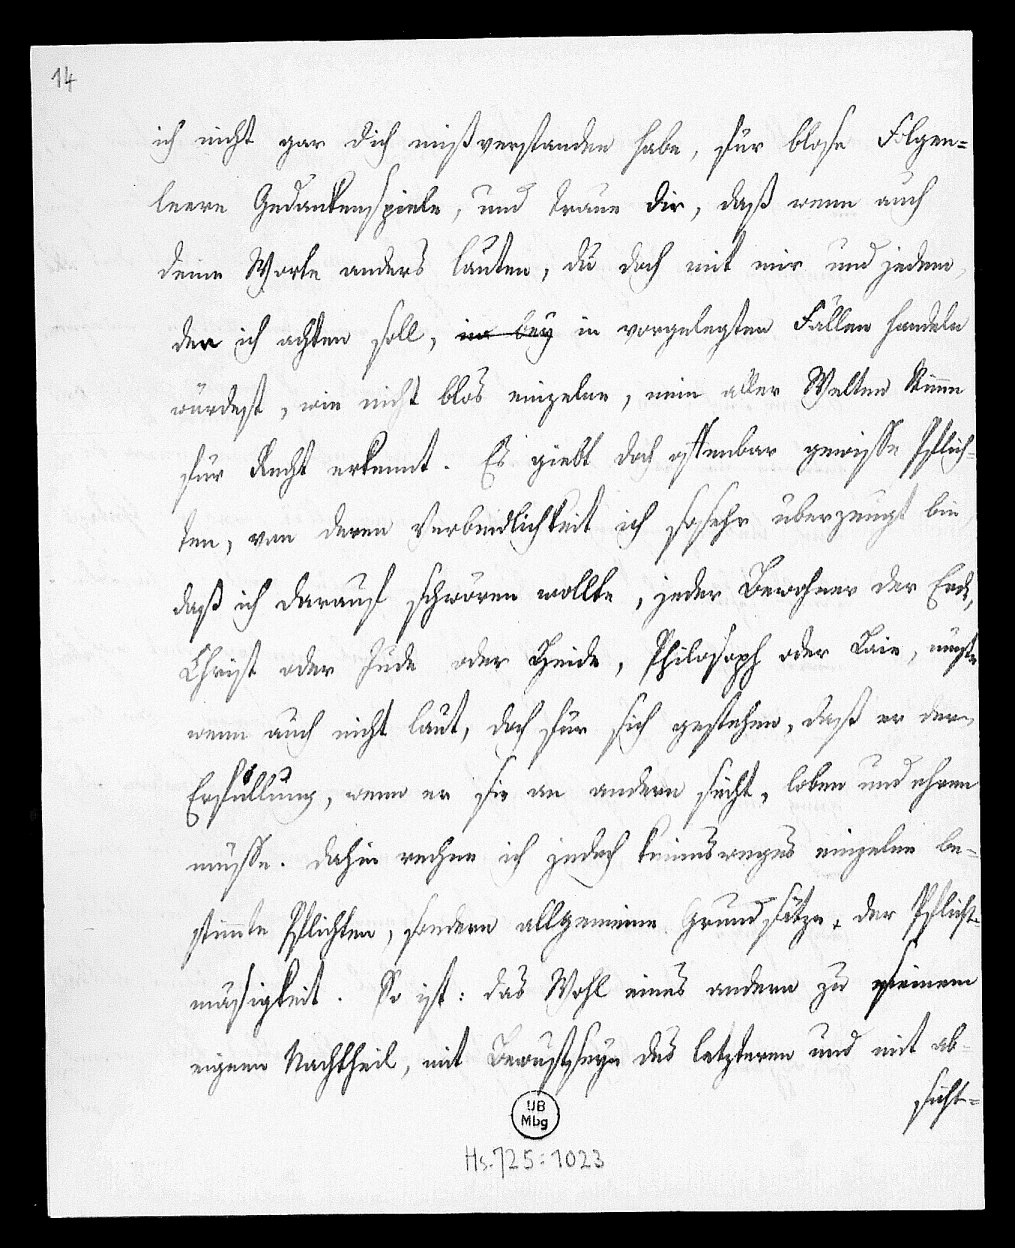 14
ich nicht gar dich mißverstanden habe, für blose Folgen=
leere Gedankenspiele, und traue dir, daß wenn auch
deine Worte anders lauten, du doch mit mir und jedem,
den ich achten soll, im bey in vorgelegten Fällen handeln
würdest, wie nicht blos einzelne, nein aller Welten Stimme
für Recht erkennt. Es giebt doch offenbar gewisse Pflich=
ten, von deren Verbindlichkeit ich so sehr überzeugt bin,
daß ich darauf schwören wollte, jeder Bewohner der Erde,
Christ oder Jude oder Heide, Philosoph oder Laie, müste
wenn auch nicht laut, doch für sich gestehen, daß er deren
Erfüllung, wenn er sie an andern sieht, loben und ehren
müsse. Dahin rechne ich jedoch keinesweges einzelne be=
stimte Pflichten, sondern allgemeine Grundsätze der Pflicht=
mäsigkeit. So ist: das Wohl eines andern zu seinem
eignen Nachtheil, mit Bewustseyn des letzteren und mit ab=
sicht=
UB
Mbg
Hs. 725:1023